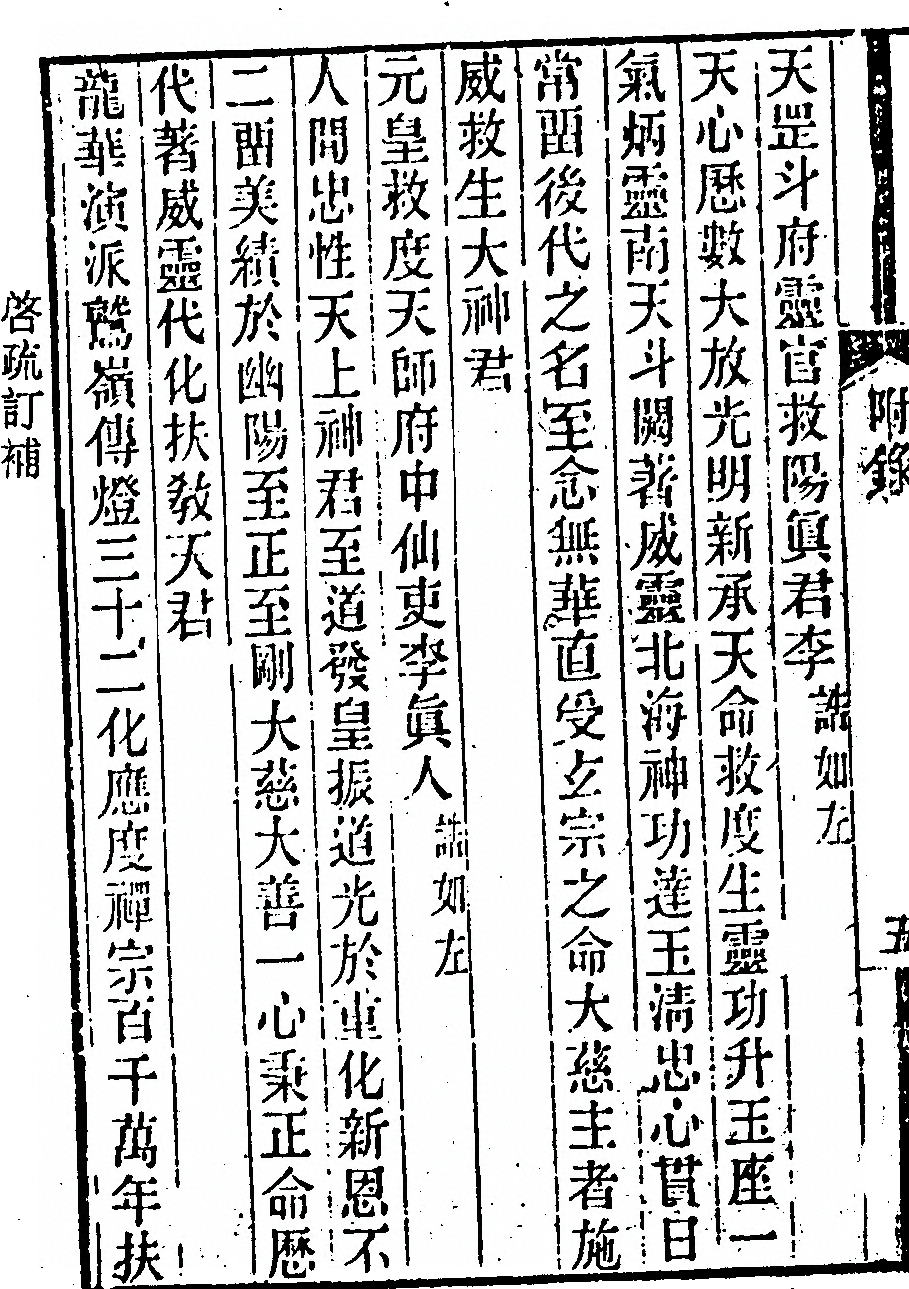 附錄
五
天罡斗府靈官救陽眞君李誥如左
天心歷數大放光明新承天命救度生靈功升玉座一
氣炳靈南天斗闕著威靈北海神功達玉清忠心貫日
常畱後代之名至念無華直受玄宗之命大慈主者施
威救生大神君
元皇救度天師府中仙吏李眞人誥如左
人間忠性天上神君至道發皇振道光於重化新恩不
二畱美績於幽陽至正至剛大慈大善一心秉正命歷
代著威靈代化扶敎天君
龍華演派鷲嶺傳燈三十二化應度禪宗百千萬年扶
啓疏訂補